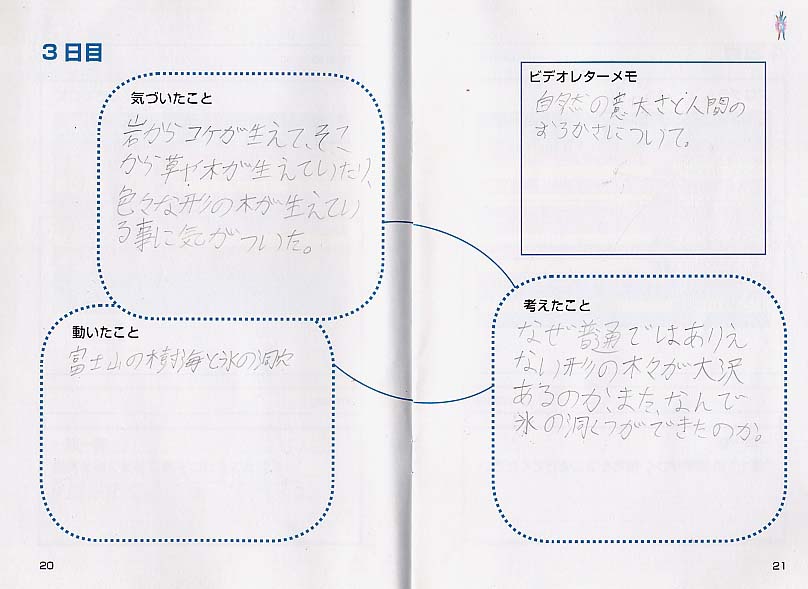 3日目
気づいたこと
岩からコケが生えて、そこ
から草や木が生えていたり、
色々な形の木が生えてい
る事に気がついた。
動いたこと
富士山の樹海と氷の洞穴
20
ビデオレターメモ
自然の意大さと人間の
おろかさについて。
考えたこと
なぜ普通ではありえ
ない形の木々が大沢
あるのか、また、なんで
氷の洞くつができたのか。
21